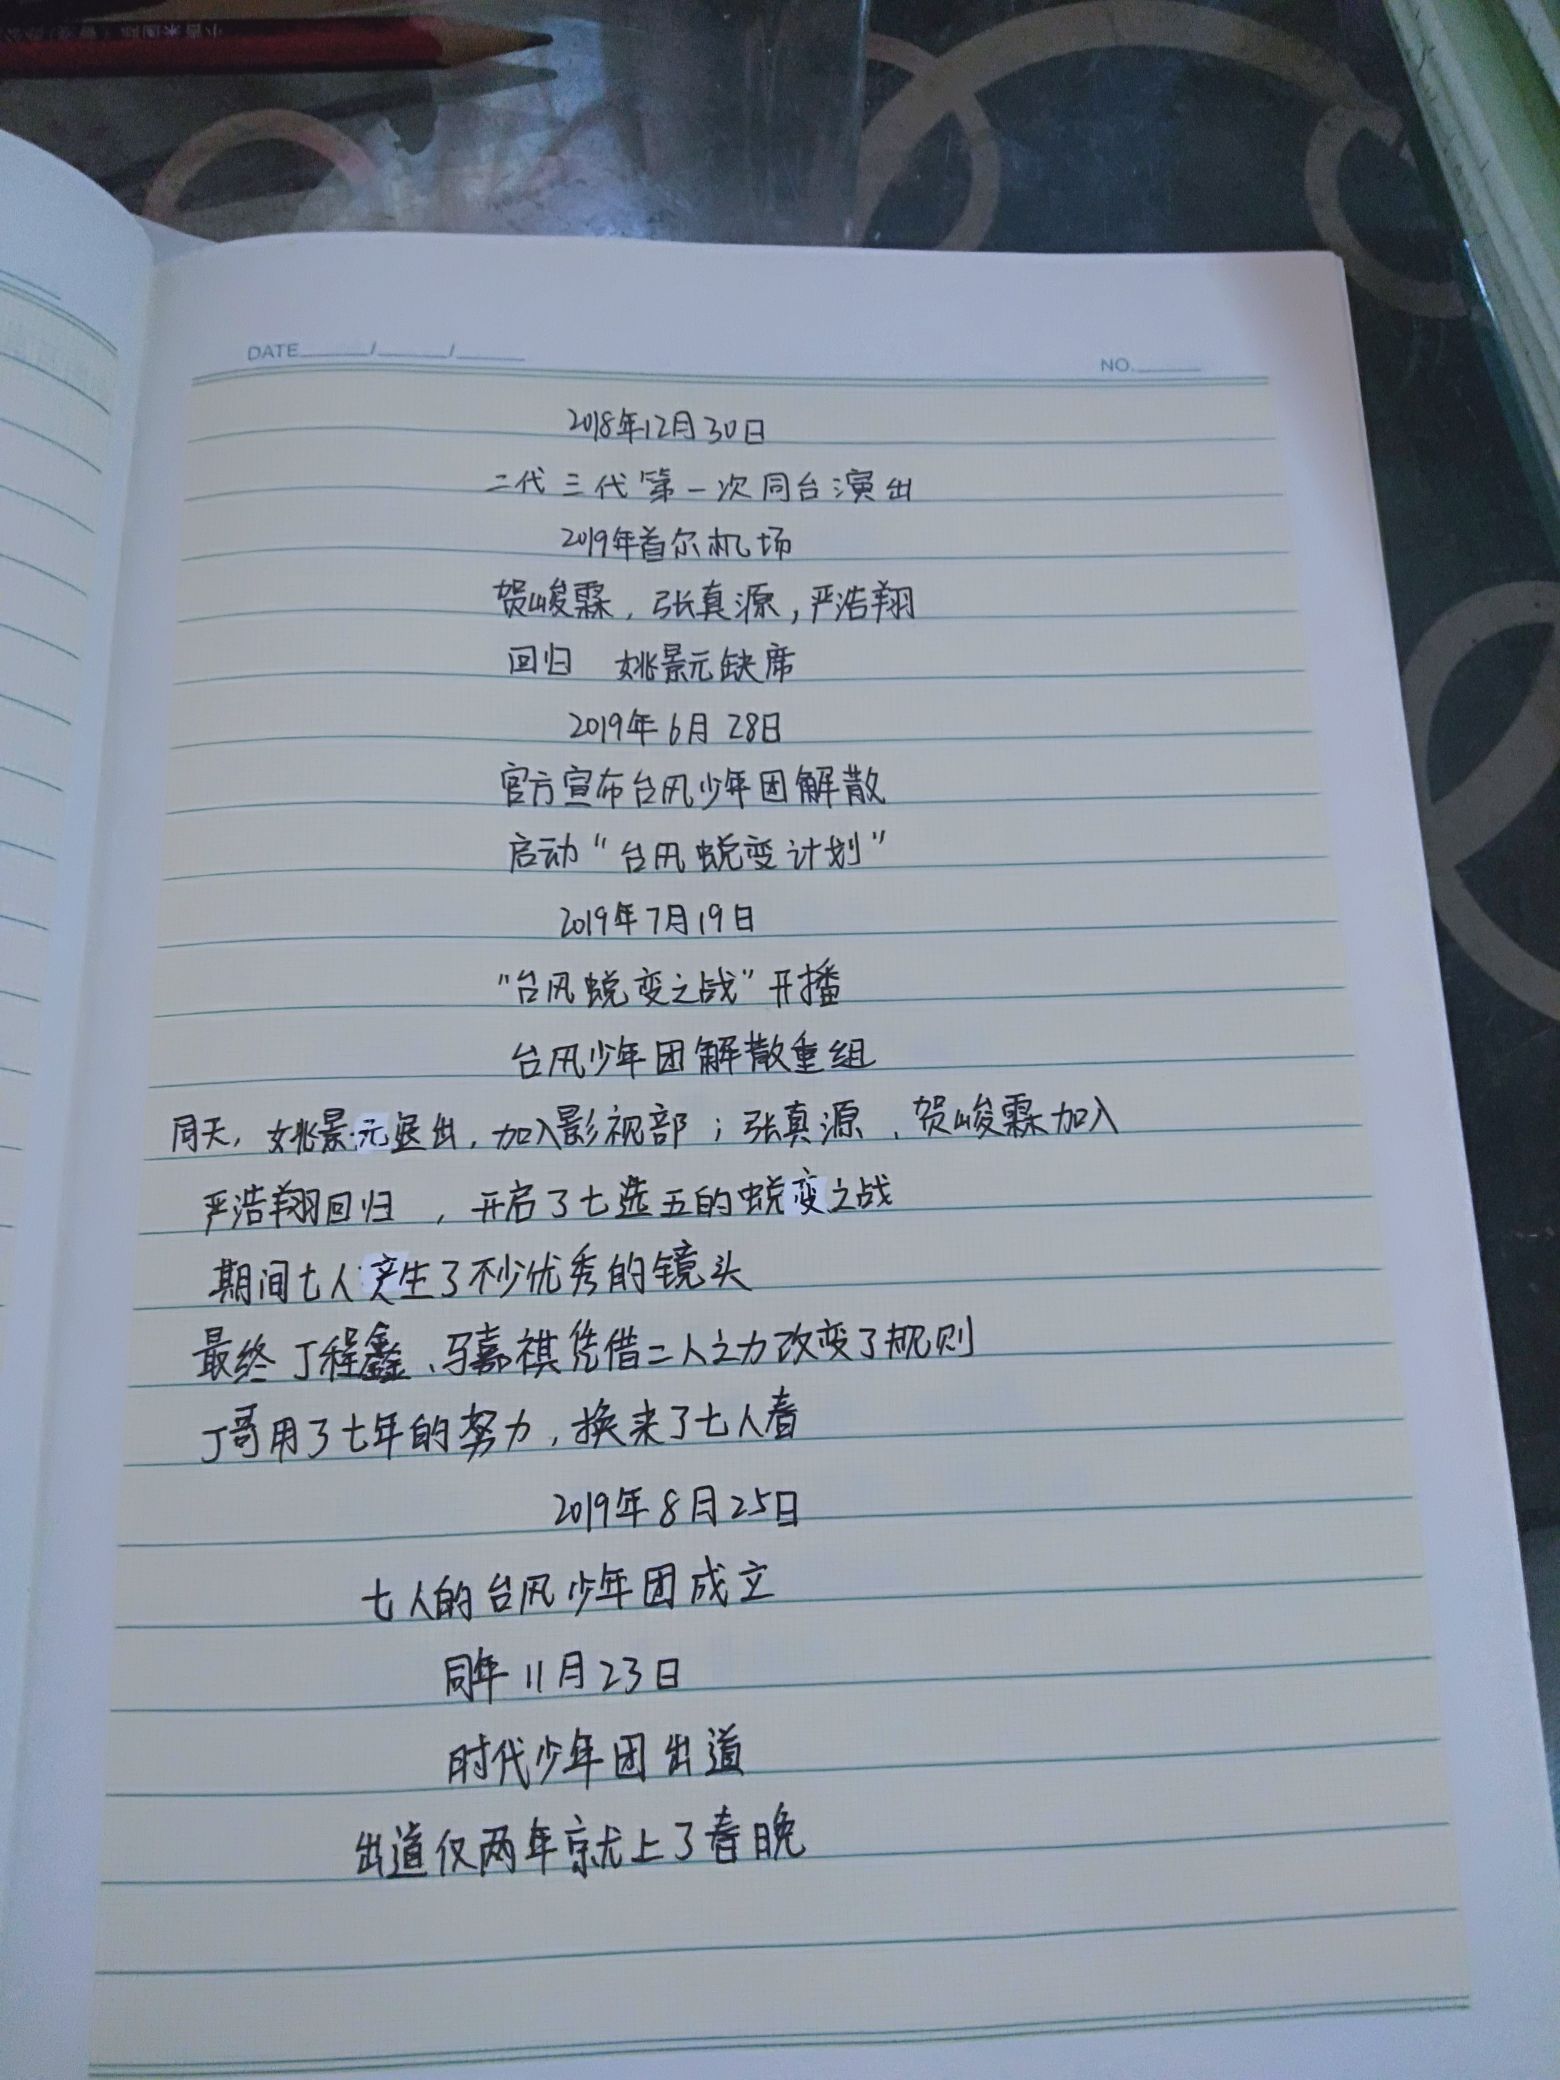 DATE / /
NO.
2018年12月30日
二代三代第一次同台演出
2019年首尔机场
贺峻霖，张真源，严浩翔
回归 姚景元缺席
2019年6月28日
官方宣布台风少年团解散
启动“台风蜕变计划”
2019年7月19日
“台风蜕变之战”开播
台风少年团解散重组
同天，姚景元退出，加入影视部；张真源、贺峻霖加入
严浩翔回归，开启了七选五的蜕变之战
期间七人产生了不少优秀的镜头
最终丁程鑫、马嘉祺凭借二人之力改变了规则
丁哥用了七年的努力，换来了七人春
2019年8月25日
七人的台风少年团成立
同年11月23日
时代少年团出道
出道仅两年就上了春晚